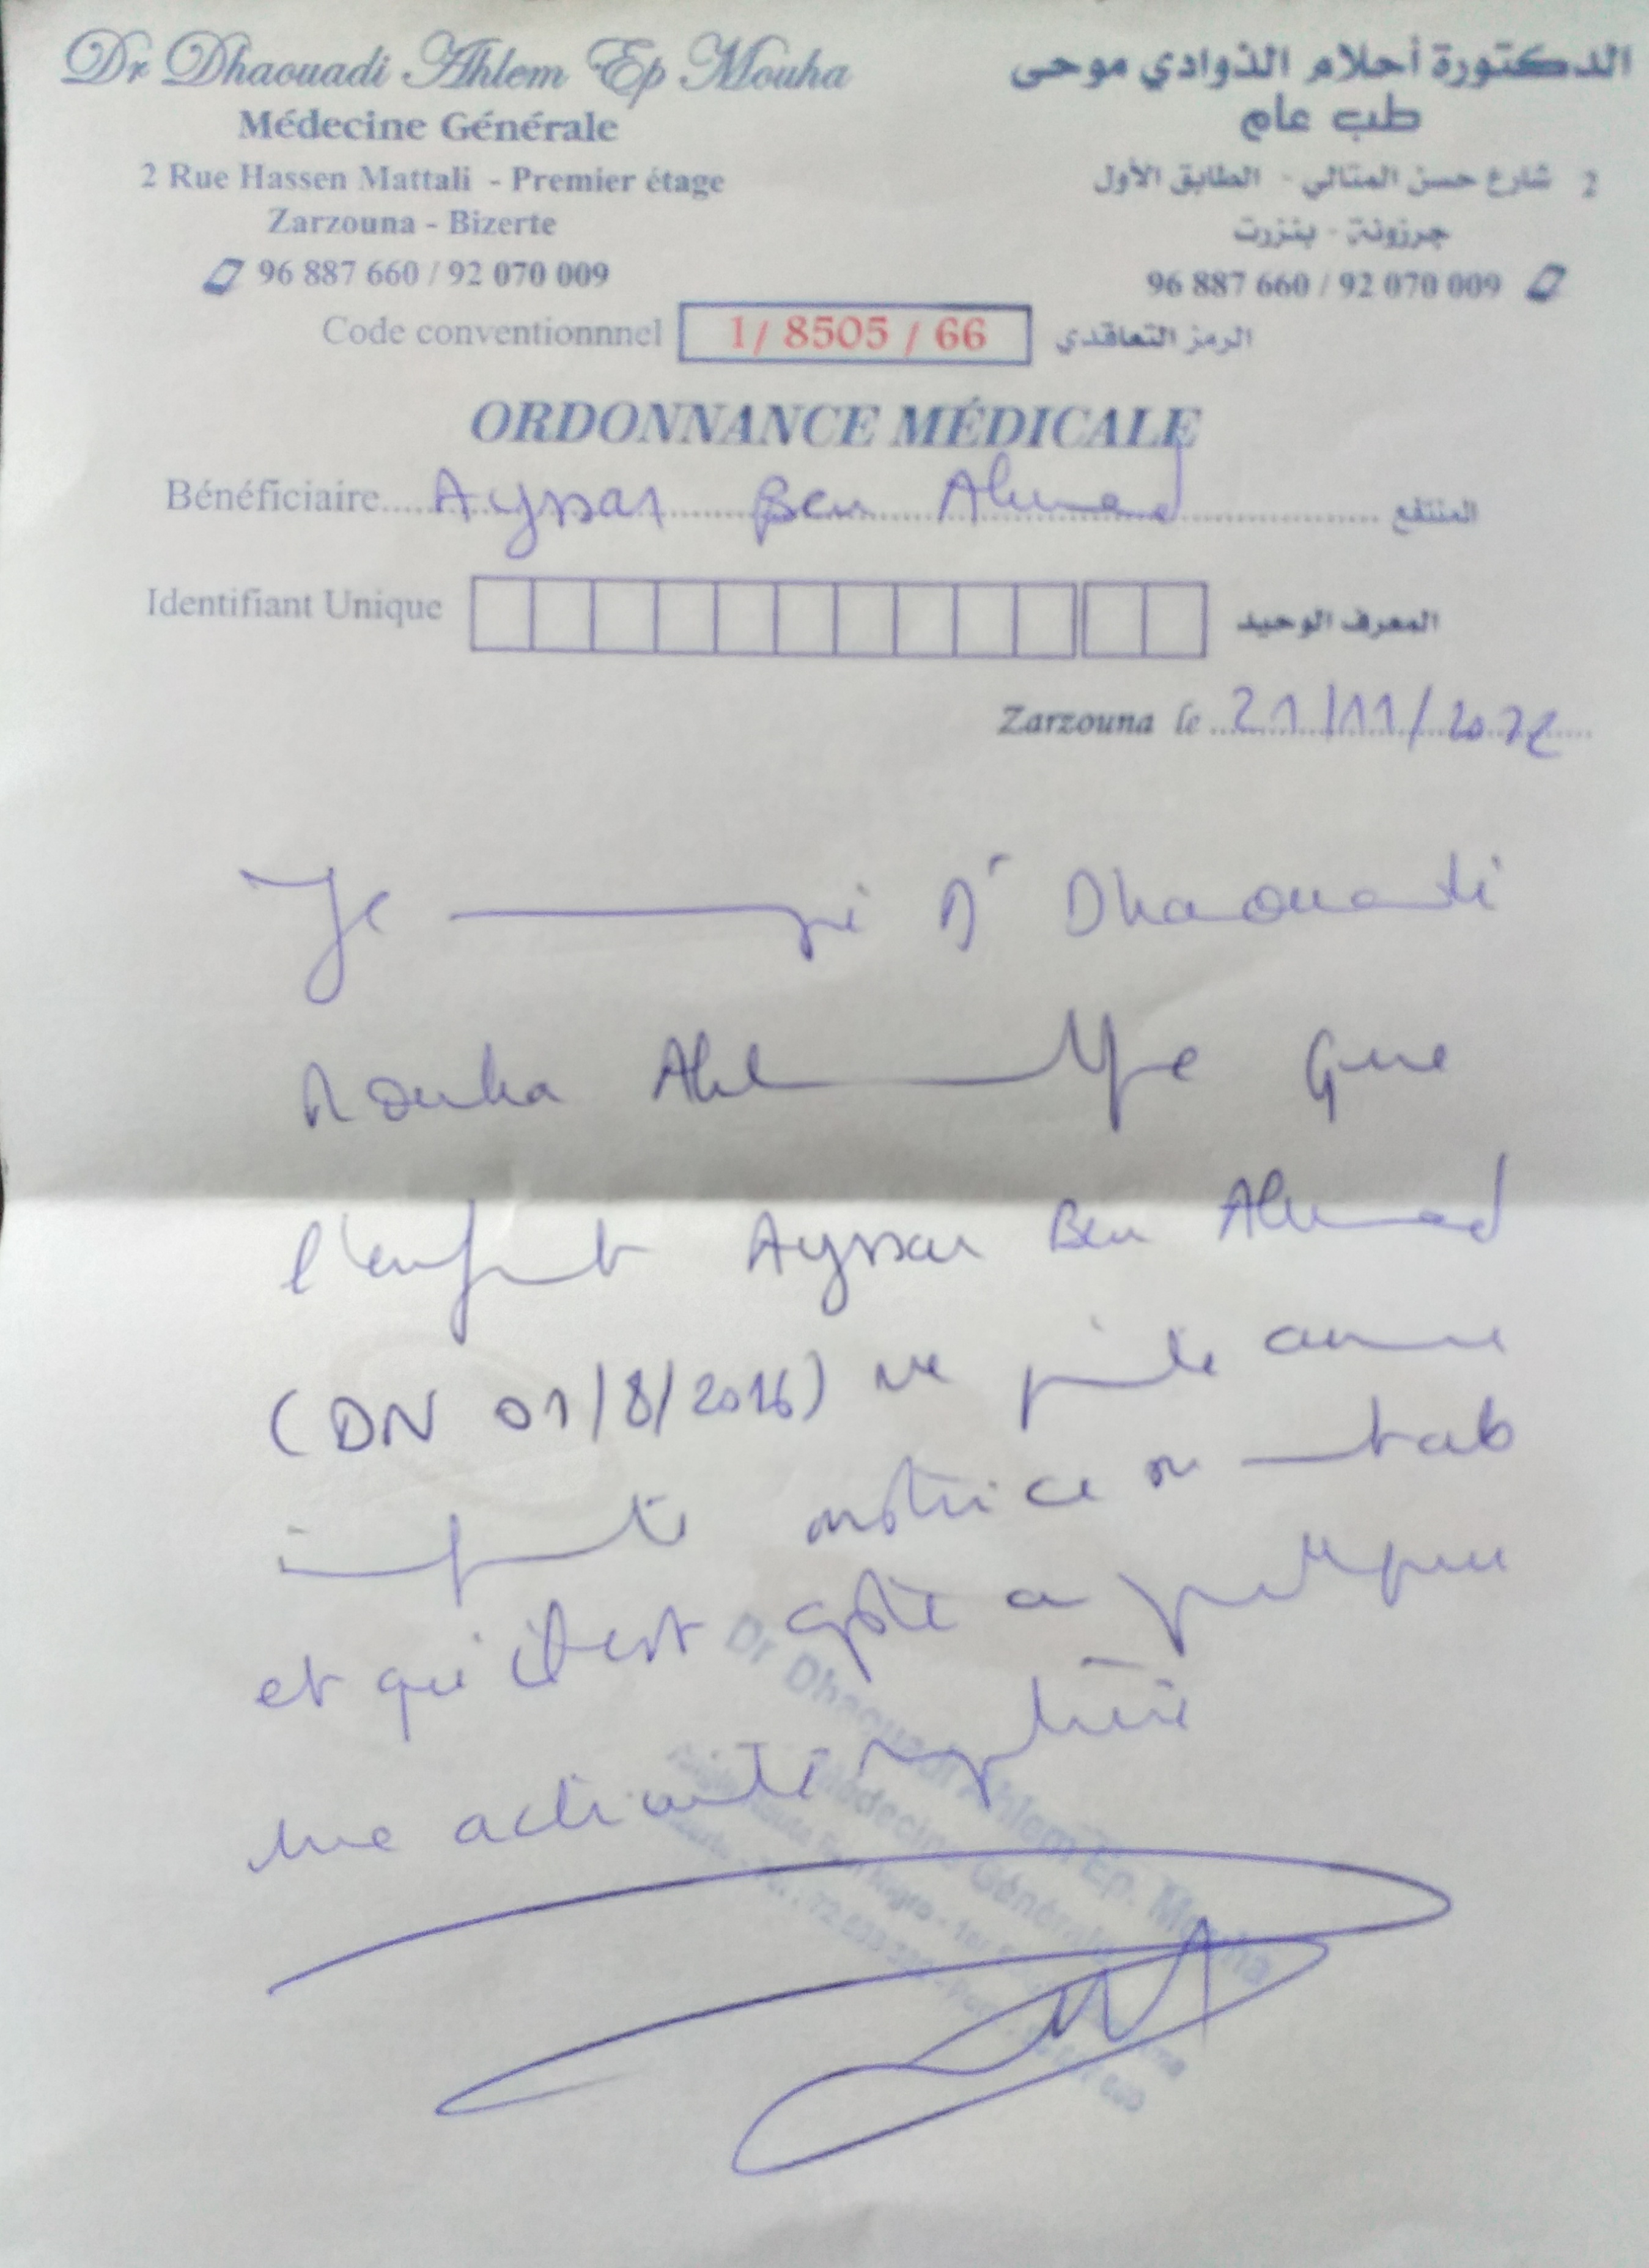 Dr Dhaouadi Ahlem Ep Mouha
الدكتورة أحلام الذوادي موحى
Médecine Générale
طب عام
2 Rue Hassen Mattali - Premier étage
2 شارع حسن المتالي - الطابق الأول
Zarzouna - Bizerte
جرزونة - بنزرت
96 887 660 / 92 070 009
96 887 660 / 92 070 009
Code conventionnnel 1/ 8505 / 66 الرمز التعاقدي
ORDONNANCE MÉDICALE
Bénéficiaire Ayssar Ben Ahmed المنتفع
Identifiant Unique المعرف الوحيد
Zarzouna le 21/11/2022
Je Dr Dhaouadi
Mouha Ahlem que
l'enfant Ayssar Ben Ahmed
(DN 01/8/2016) ne présente aucune
motrice ou mentale
et qu'il est apte a pratiquer
une activité
Dr Dhaouadi Ahlem Ep. Mouha
Médecine Générale